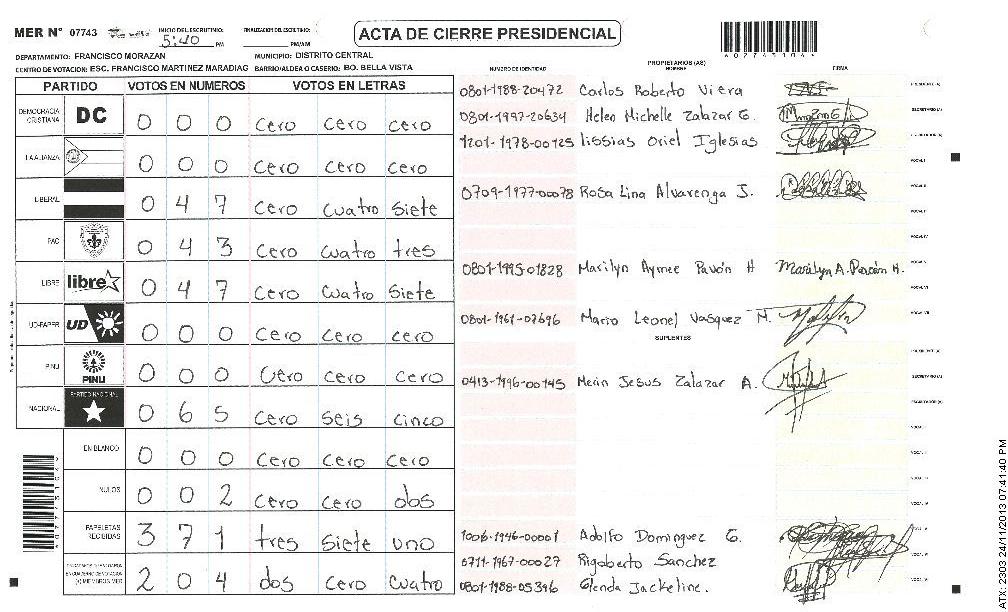 MER N° 07743 INICIO DEL ESCRUTINIO: 5:40 PM FINALIZACION DEL ESCRUTINIO: PM/AM ACTA DE CIERRE PRESIDENCIAL
*07743104*
DEPARTAMENTO: FRANCISCO MORAZAN MUNICIPIO: DISTRITO CENTRAL
CENTRO DE VOTACION: ESC. FRANCISCO MARTINEZ MARADIAG BARRIO/ALDEA O CASERIO: BO. BELLA VISTA
PARTIDO VOTOS EN NUMEROS VOTOS EN LETRAS
DEMOCRACIA CRISTIANA DC 0 0 0 cero cero cero
LA ALIANZA 0 0 0 cero cero cero
LIBERAL 0 4 7 cero cuatro siete
PAC 0 4 3 cero cuatro tres
LIBRE libre 0 4 7 cero cuatro siete
UD-FAPER UD 0 0 0 cero cero cero
PINU PINU 0 0 0 cero cero cero
NACIONAL PARTIDO NACIONAL 0 6 5 cero seis cinco
EN BLANCO 0 0 0 cero cero cero
NULOS 0 0 2 cero cero dos
PAPELETAS RECIBIDAS 3 7 1 tres siete uno
(+) MIEMBROS MER 2 0 4 dos cero cuatro
NUMERO DE IDENTIDAD PROPIETARIOS (AS) NOMBRE FIRMA
0801-1988-20472 Carlos Roberto Viera
0801-1997-20634 Helen Michelle Zalazar G.
1201-1978-00125 lissias Oriel Iglesias
0709-1977-00078 Rosa Lina Alvarenga J.
0801-1995-01828 Marilyn Aymee Pavón H Marilyn A. Pavón H.
0801-1961-07696 Mario Leonel Vasquez M.
SUPLENTES
0413-1996-00145 Merin Jesus Zalazar A.
1006-1946-00061 Adolfo Dominguez G.
0711-1967-00027 Rigoberto Sanchez
0801-1988-05396 Glenda Jackeline.
ATX: 2303 24/11/2013 07:41:40 PM